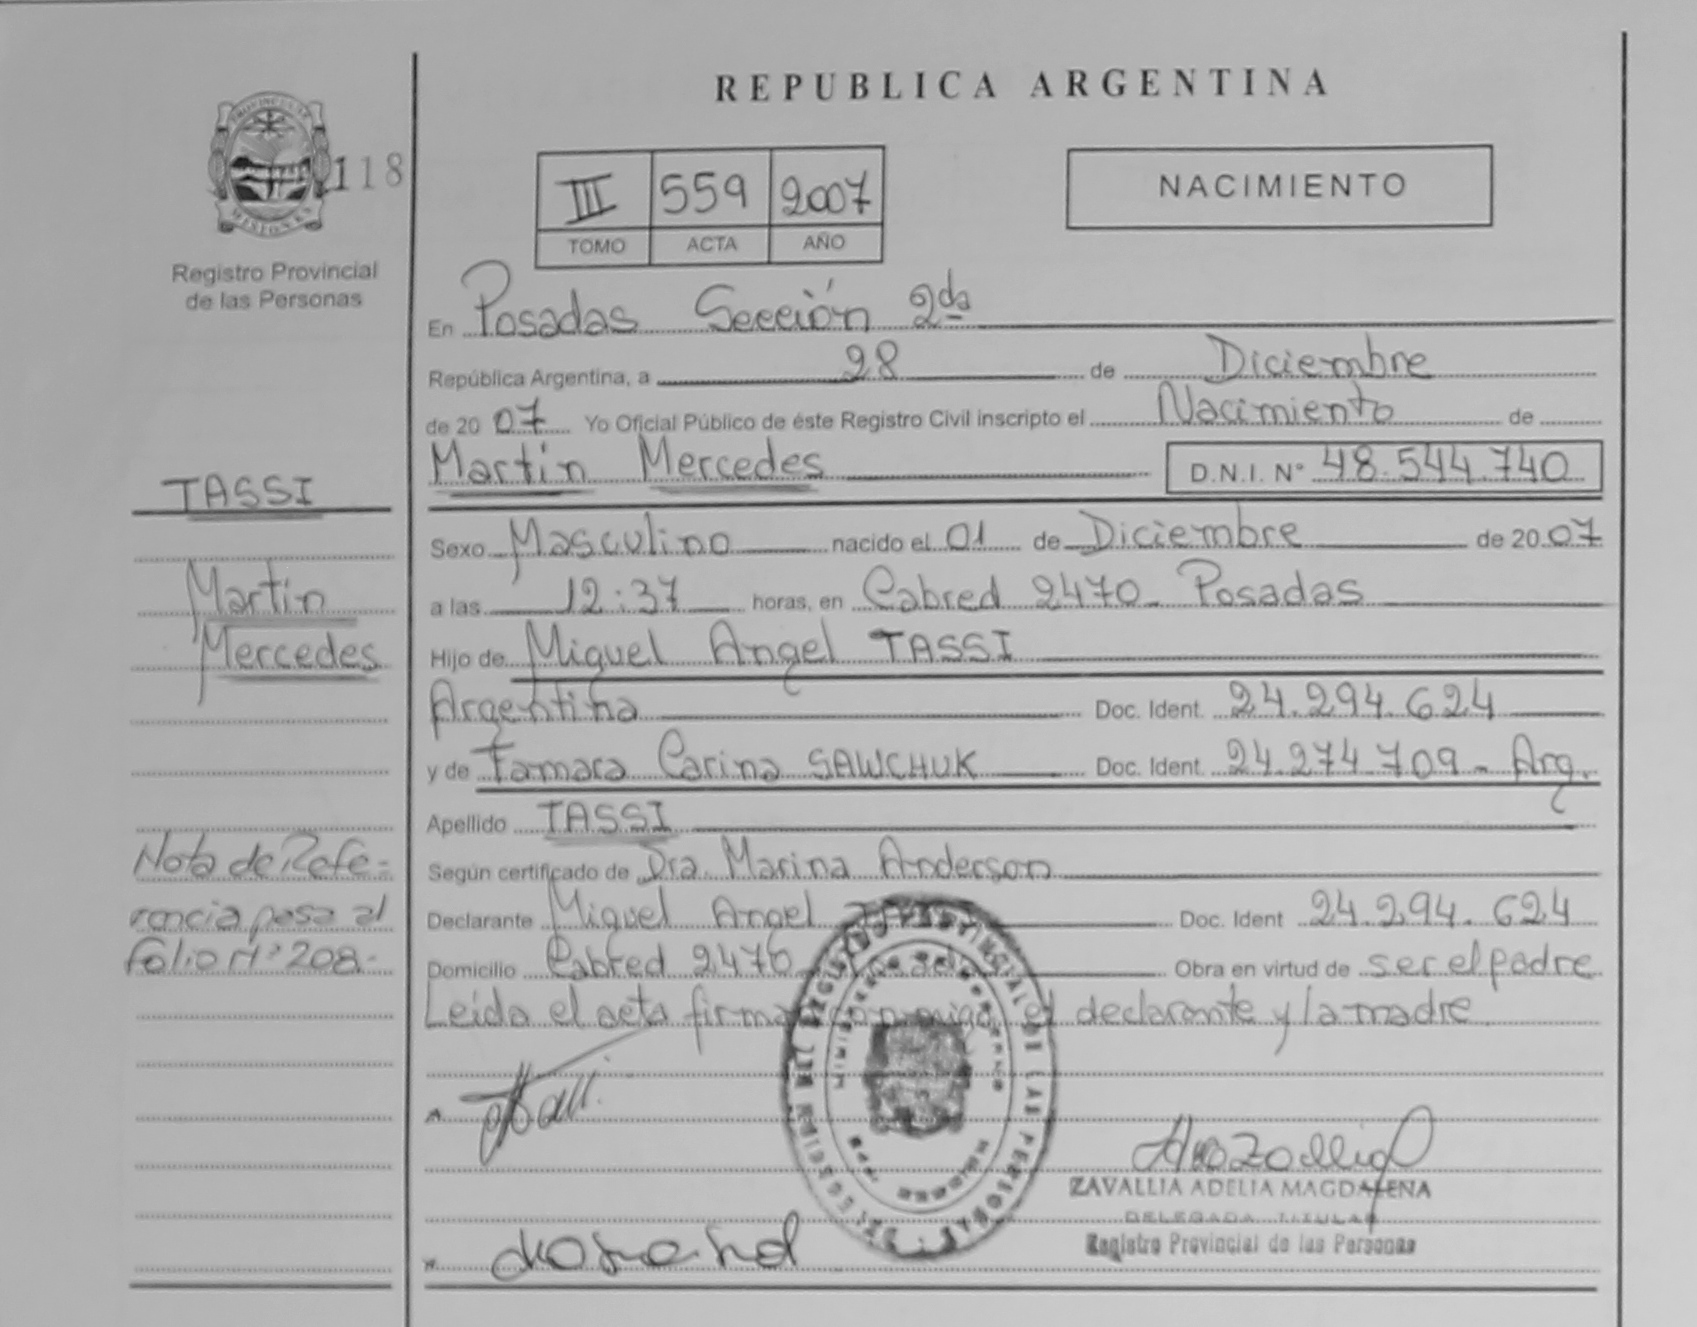 REPUBLICA ARGENTINA
PROVINCIA DE
MISIONES
118
Registro Provincial
de las Personas
III 559 2007
TOMO ACTA AÑO
NACIMIENTO
En Posadas Sección 2da
República Argentina, a 28 de Diciembre
de 2007 Yo Oficial Público de éste Registro Civil inscripto el Nacimiento de
Martin Mercedes D.N.I. N° 48.544.740
TASSI
Martin
Mercedes
Sexo Masculino nacido el 01 de Diciembre de 2007
a las 12:37 horas, en Cabred 2470 Posadas
Hijo de Miguel Angel TASSI
Argentina Doc. Ident. 24.294.624
y de Tamara Carina SAWCHUK Doc. Ident. 24.274.709 - Arg.
Apellido TASSI
Según certificado de Dra. Marina Anderson
Declarante Miguel Angel Doc. Ident 24.294.624
Domicilio Cabred 2470 Obra en virtud de ser el padre
Leida el acta firma conmigo el declarante y la madre
Nota de Refe-
rencia pasa al
folio N° 208.-
ZAVALLIA ADELIA MAGDALENA
DELEGADA TITULAR
Registro Provincial de las Personas